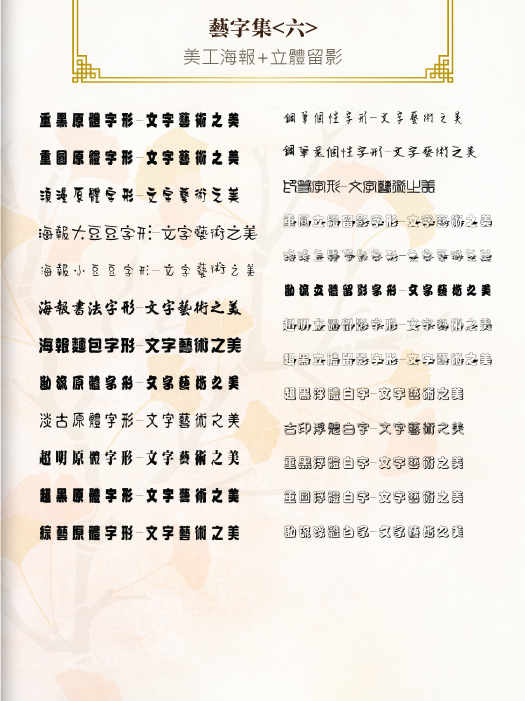 藝字集<六>
美工海報+立體留影
重黑原體字形-文字藝術之美
重圓原體字形-文字藝術之美
浪漫原體字形-文字藝術之美
海報大豆豆字形-文字藝術之美
海報小豆豆字形-文字藝術之美
海報書法字形-文字藝術之美
海報麵包字形-文字藝術之美
勘流原體字形-文字藝術之美
淡古原體字形-文字藝術之美
超明原體字形-文字藝術之美
超黑原體字形-文字藝術之美
綜藝原體字形-文字藝術之美
鋼筆個性字形-文字藝術之美
鋼筆黑個性字形-文字藝術之美
字形-文字藝術之美
重圓立體留影字形-文字藝術之美
浪漫立體留影字形-文字藝術之美
勘流立體留影字形-文字藝術之美
超明立體留影字形-文字藝術之美
超黑立體留影字形-文字藝術之美
超黑浮體白字-文字藝術之美
古印浮體白字-文字藝術之美
重黑浮體白字-文字藝術之美
重圓浮體白字-文字藝術之美
勘流浮體白字-文字藝術之美